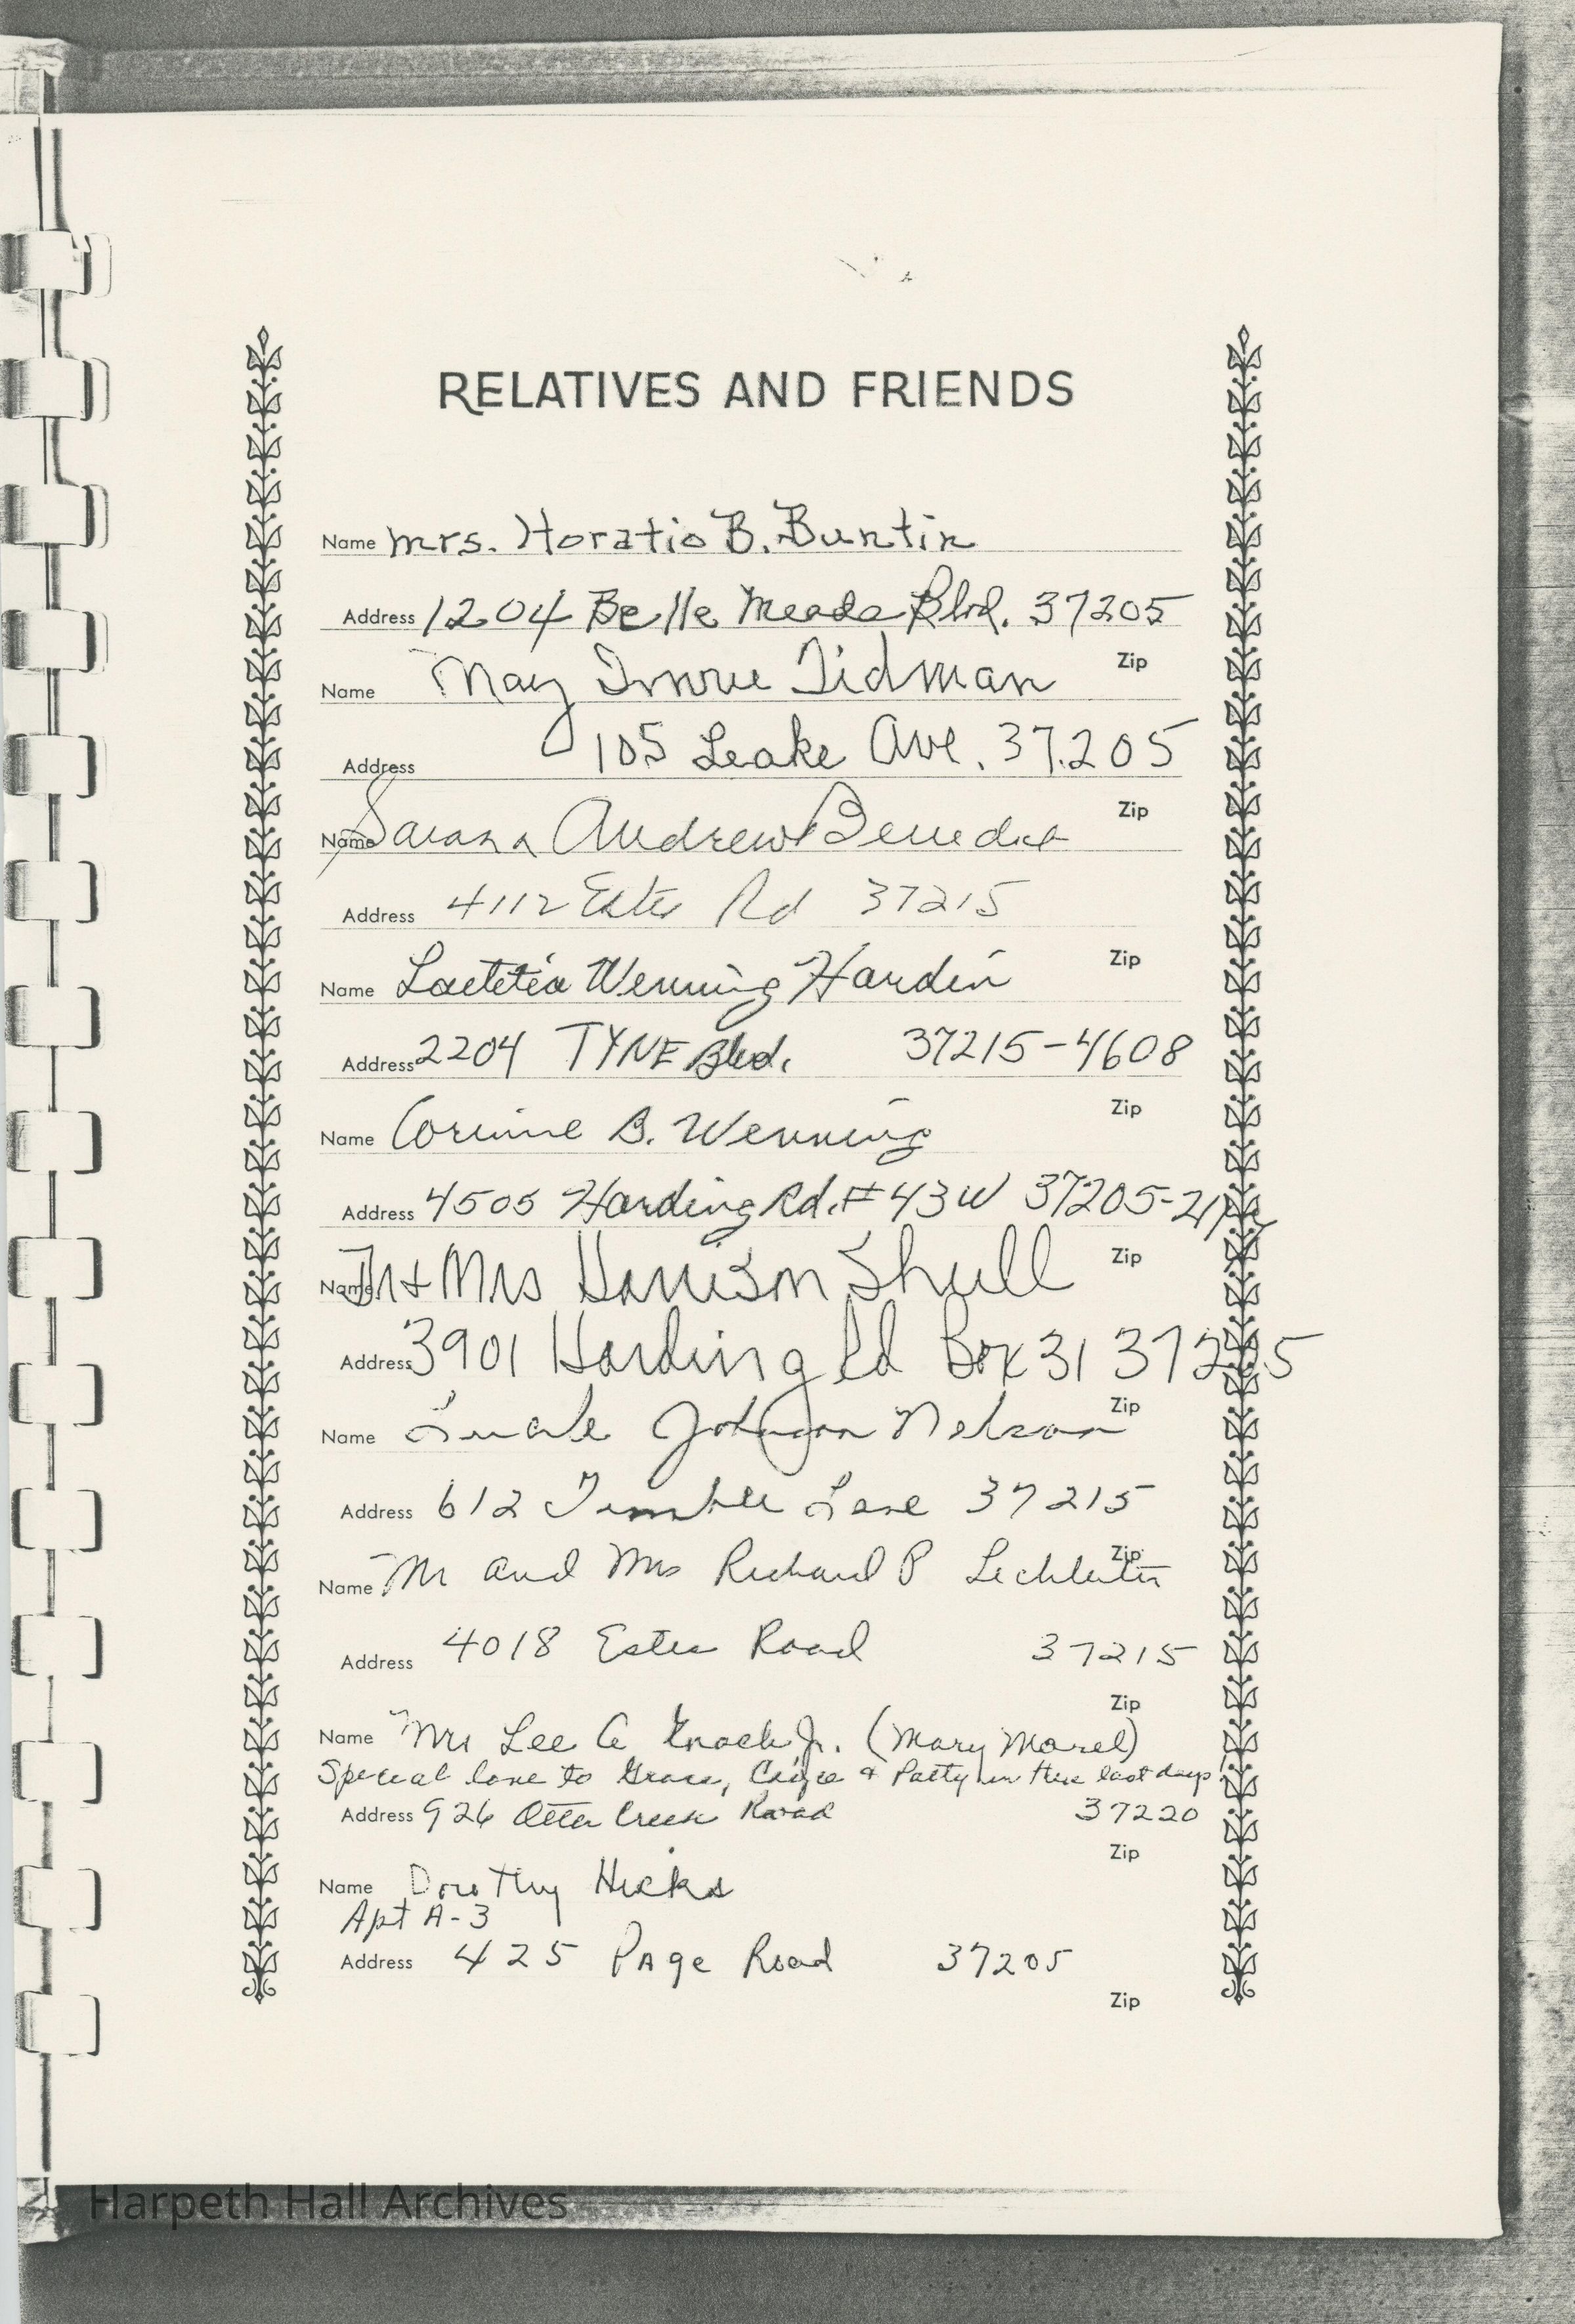 RELATIVES AND FRIENDS
Name Mrs. Horatio B. Buntin
Address 1204 Belle Meade Blvd. 37205
Zip
Name May Tidman
Address 105 Leake Ave. 37205
Zip
Name Andrews Benedict
Address 4112 Estes Rd 37215
Zip
Name Laetitia Wenning Hardin
Address 2204 TYNE Blvd. 37215-4608
Zip
Name Corinne B. Wenning
Address 4505 Harding Rd. #43W
Zip
Name Mrs Harrison Shull
Address 3901 Harding Rd Box 31 37205
Zip
Name Johnson Nelson
Address 612 Lane 37215
Zip
Name Mr and Mrs Richard P Lechleiter
Address 4018 Estes Road 37215
Zip
Name Mrs Lee A Jr. (Mary Morel)
Special love to Grace, & Patty in these last days!
Address 926 Otter Creek Road 37220
Zip
Name Dorothy Hicks
Apt A-3
Address 425 Page Road 37205
Zip
Harpeth Hall Archives